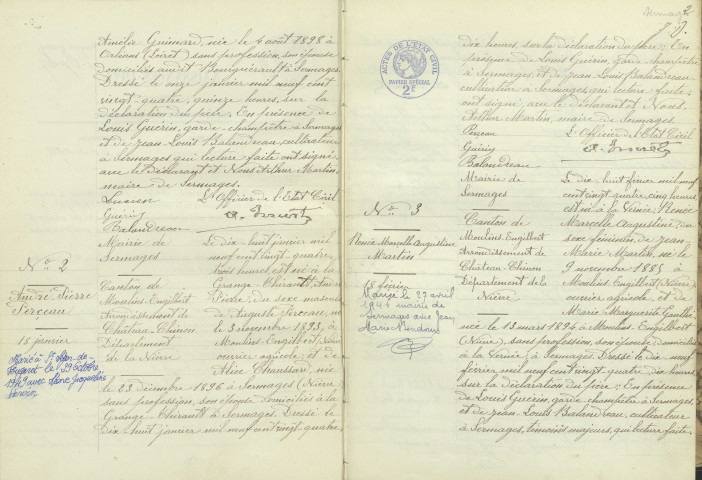 Amélie Guimard, née le 4 août 1898 à
Orléans (Loiret) sans profession, son épouse
domiciliés audit Bourguérault à Sermages.
Dressé le onze janvier mil neuf cent
vingt-quatre, quinze heures, sur la
déclaration du père. En présence de
Louis Guérin, garde-champêtre à Sermages
et de Jean-Louis Balandreau, cultivateur
à Sermages qui lecture faite ont signé
avec le Déclarant et Nous Arthur Martin
maire de Sermages.
L'Officier de l'Etat Civil
Guérin
Balandreau
Mairie de
Sermages
Canton de
Moulins-Engilbert
Arrondissement de
Château-Chinon
Département
de la Nièvre
N° 2
André Pierre
18 janvier
Marié à
le 29 octobre
1949 avec
Le dix-huit janvier mil
neuf cent vingt-quatre,
trois heures, est né à la
Grange
Pierre, du sexe masculin
de Auguste
le 3 novembre 1893, à
Moulins-Engilbert (Nièvre)
ouvrier agricole, et de
Alice Chaussard, née
le 23 décembre 1896 à Sermages (Nièvre)
sans profession, son épouse domiciliés à la
Grange à Sermages. Dressé le
dix-huit janvier mil neuf cent vingt-quatre,
Sermages
2
ACTES DE L'ETAT CIVIL
PAPIER SPÉCIAL
2F
dix heures, sur la déclaration du père; En
présence de Louis Guérin, garde champêtre
à Sermages, et de Jean Louis Balandreau
cultivateur à Sermages, qui lecture faite,
ont signé avec le déclarant et Nous
Arthur Martin, maire de Sermages.
L'Officier de l'Etat Civil
Guérin
Balandreau
Mairie de
Sermages
Canton de
Moulins-Engilbert
Arrondissement de
Château-Chinon
Département de la
Nièvre
N° 3
Renée Marcelle Augustine
Martin
18 février
Mariée le 27 avril
1946 mairie de
Sermages avec Jean
Marie
Le dix huit février mil neuf
cent vingt-quatre, cinq heures
est née à la Vernée, Renée
Marcelle Augustine, du
sexe féminin, de Jean
Marie Martin, né le
9 novembre 1885 à
Moulins-Engilbert (Nièvre)
ouvrier agricole, et de
Marie Marguerite
née le 13 mars 1896 à Moulins-Engilbert
(Nièvre), sans profession, son épouse; domiciliés
à la Vernée, à Sermages. Dressé le dix-neuf
février, mil neuf cent vingt-quatre, dix heures
sur la déclaration du père; En présence
de Louis Guérin, garde-champêtre à Sermages
et de Jean-Louis Balandreau, cultivateur
à Sermages, témoins majeurs, qui lecture faite,